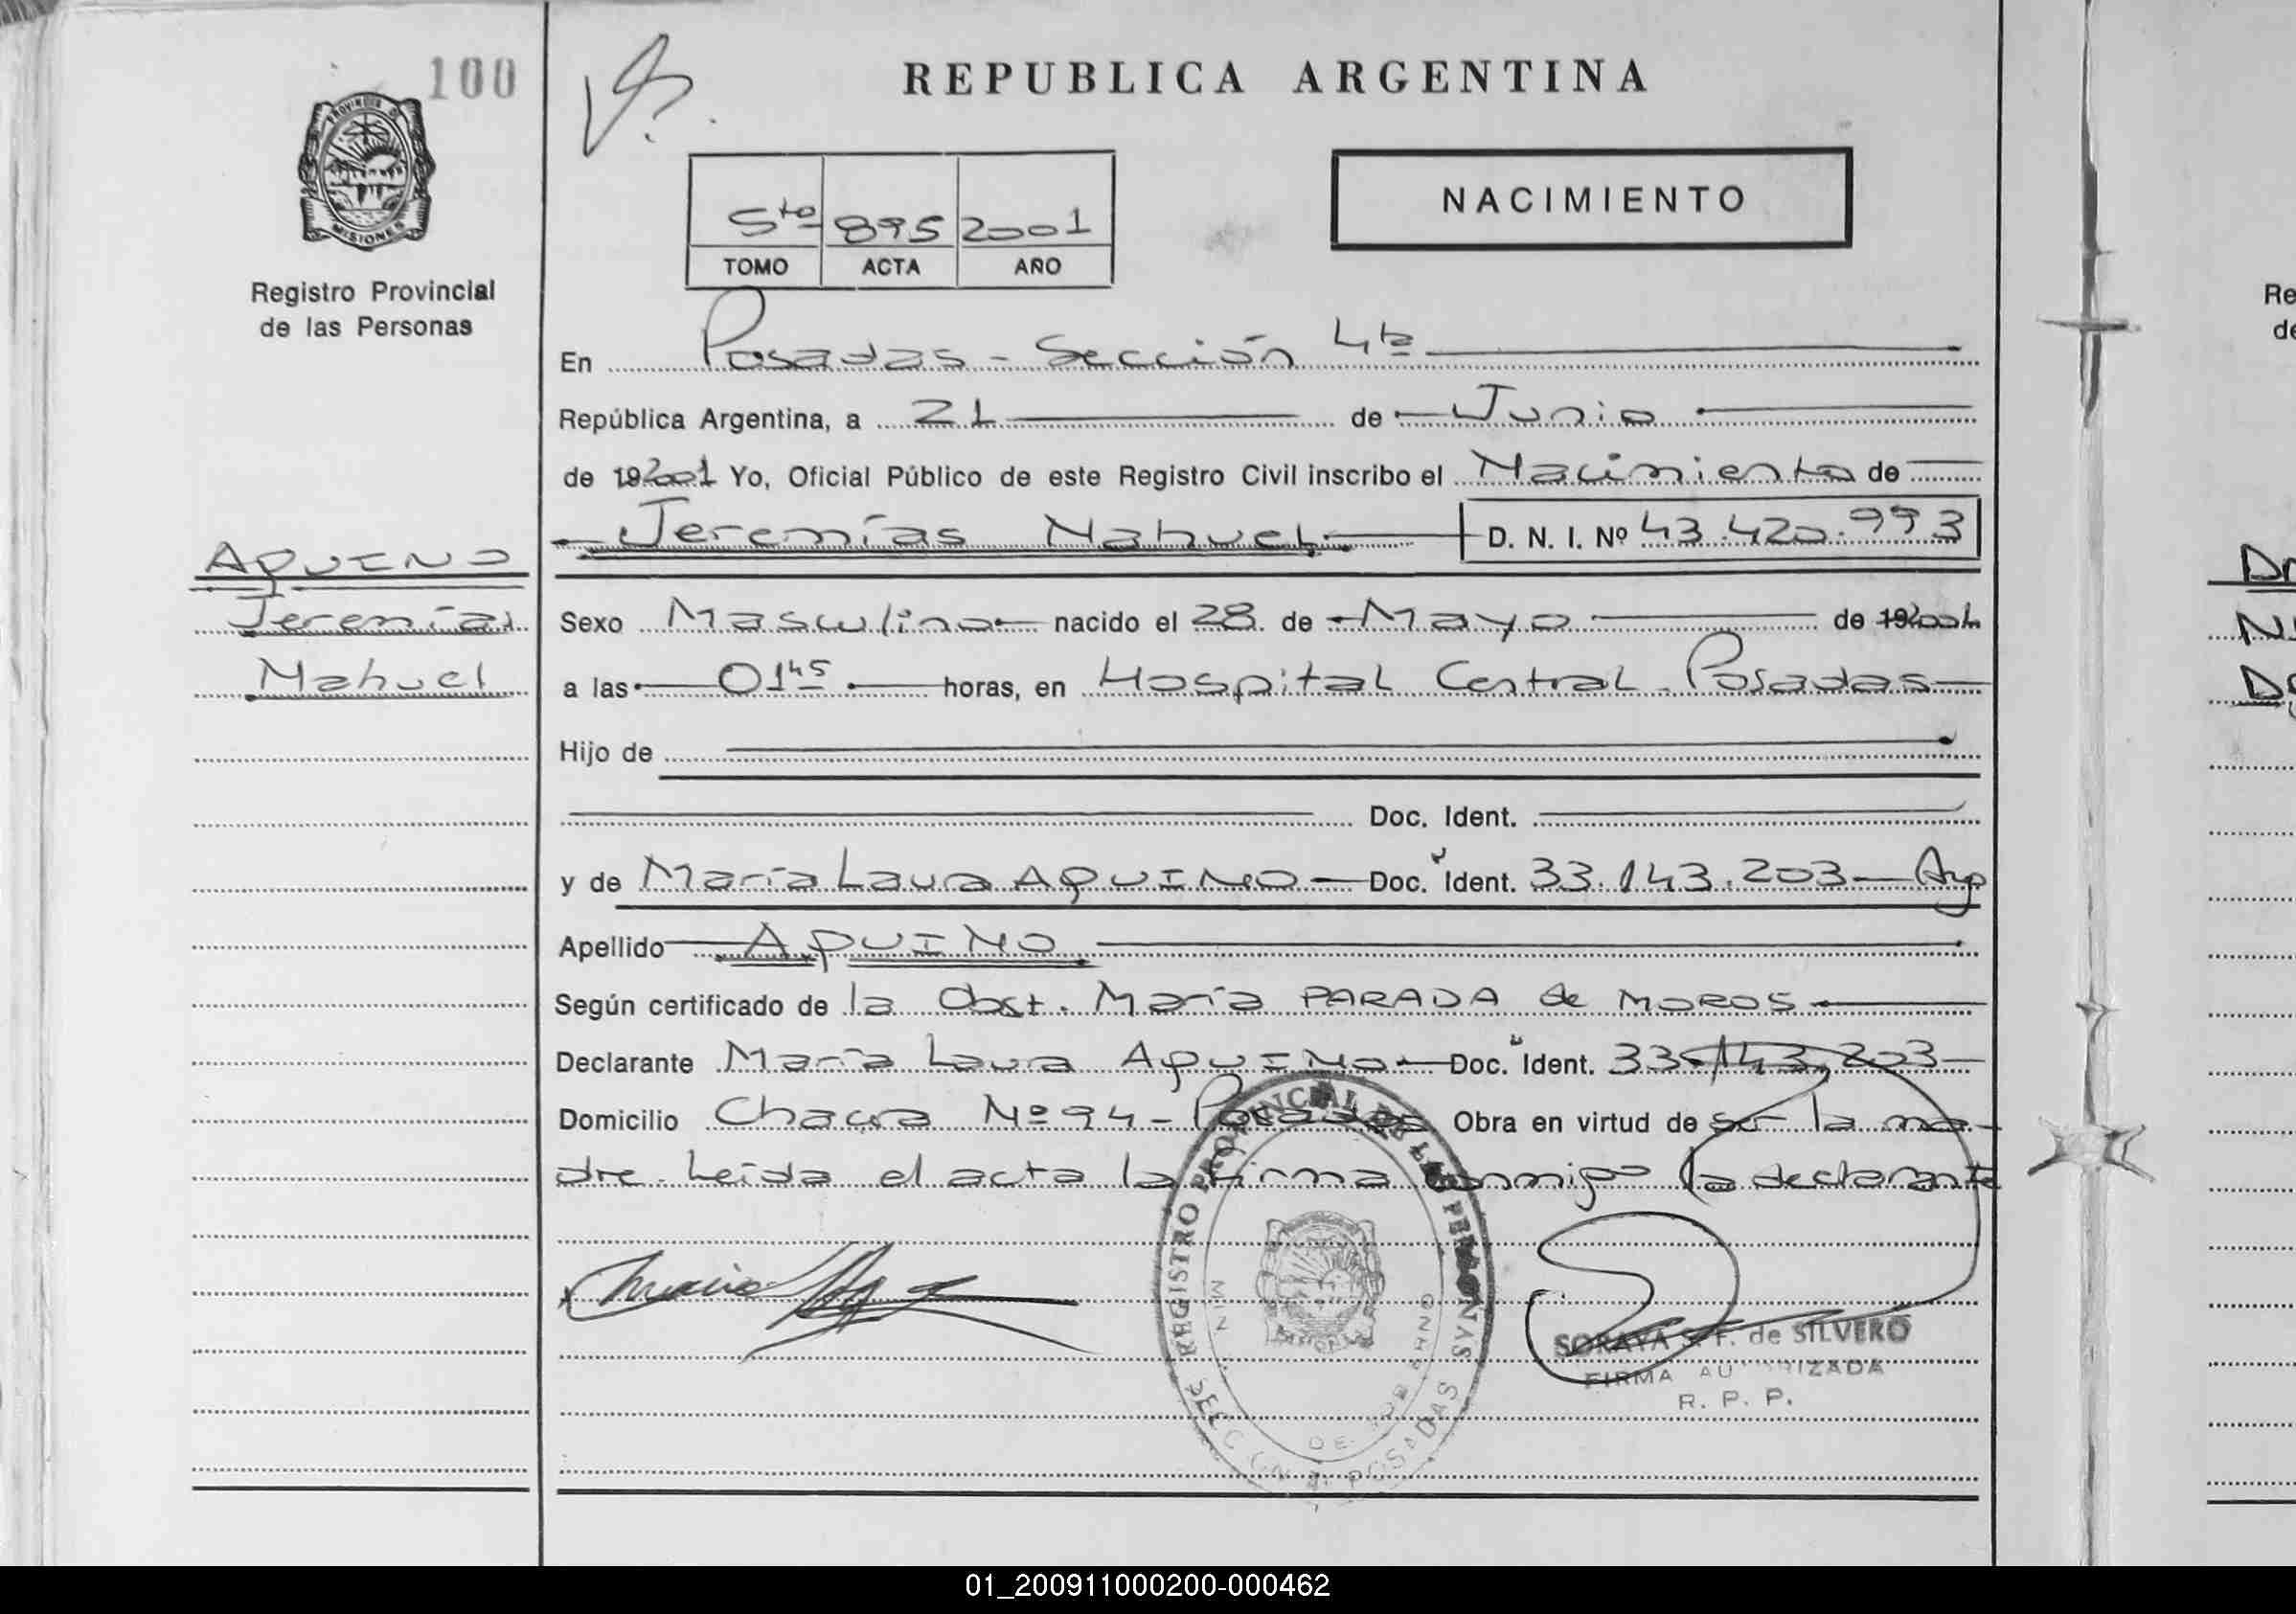 100
PROVINCIA D
MISIONES
Registro Provincial
de las Personas
AQUINO
Jeremías
Nahuel
REPUBLICA ARGENTINA
NACIMIENTO
5to 895 2001
TOMO ACTA AÑO
En Posadas - Sección 4ta
República Argentina, a 21 de Junio
de 192001 Yo, Oficial Público de este Registro Civil inscribo el Nacimiento de
Jeremías Nahuel D. N. I. Nº 43.420.993
Sexo Masculino nacido el 28 de Mayo de 192001
a las 01 45 horas, en Hospital Central Posadas
Hijo de
Doc. Ident.
y de María Laura AQUINO Doc. Ident. 33.143.203 Arg
Apellido AQUINO
Según certificado de la Obst. María PARADA de MOROS
Declarante María Laura AQUINO Doc. Ident. 33.143.203
Domicilio Chacra Nº 94 - Posadas Obra en virtud de ser la ma-
dre. Leída el acta la firma conmigo la declarante
REGISTRO PROVINCIAL DE LAS PERSONAS
POSADAS
SORAYA S. F. de SILVERO
FIRMA AUTORIZADA
R. P. P.
Re
de
01_200911000200-000462